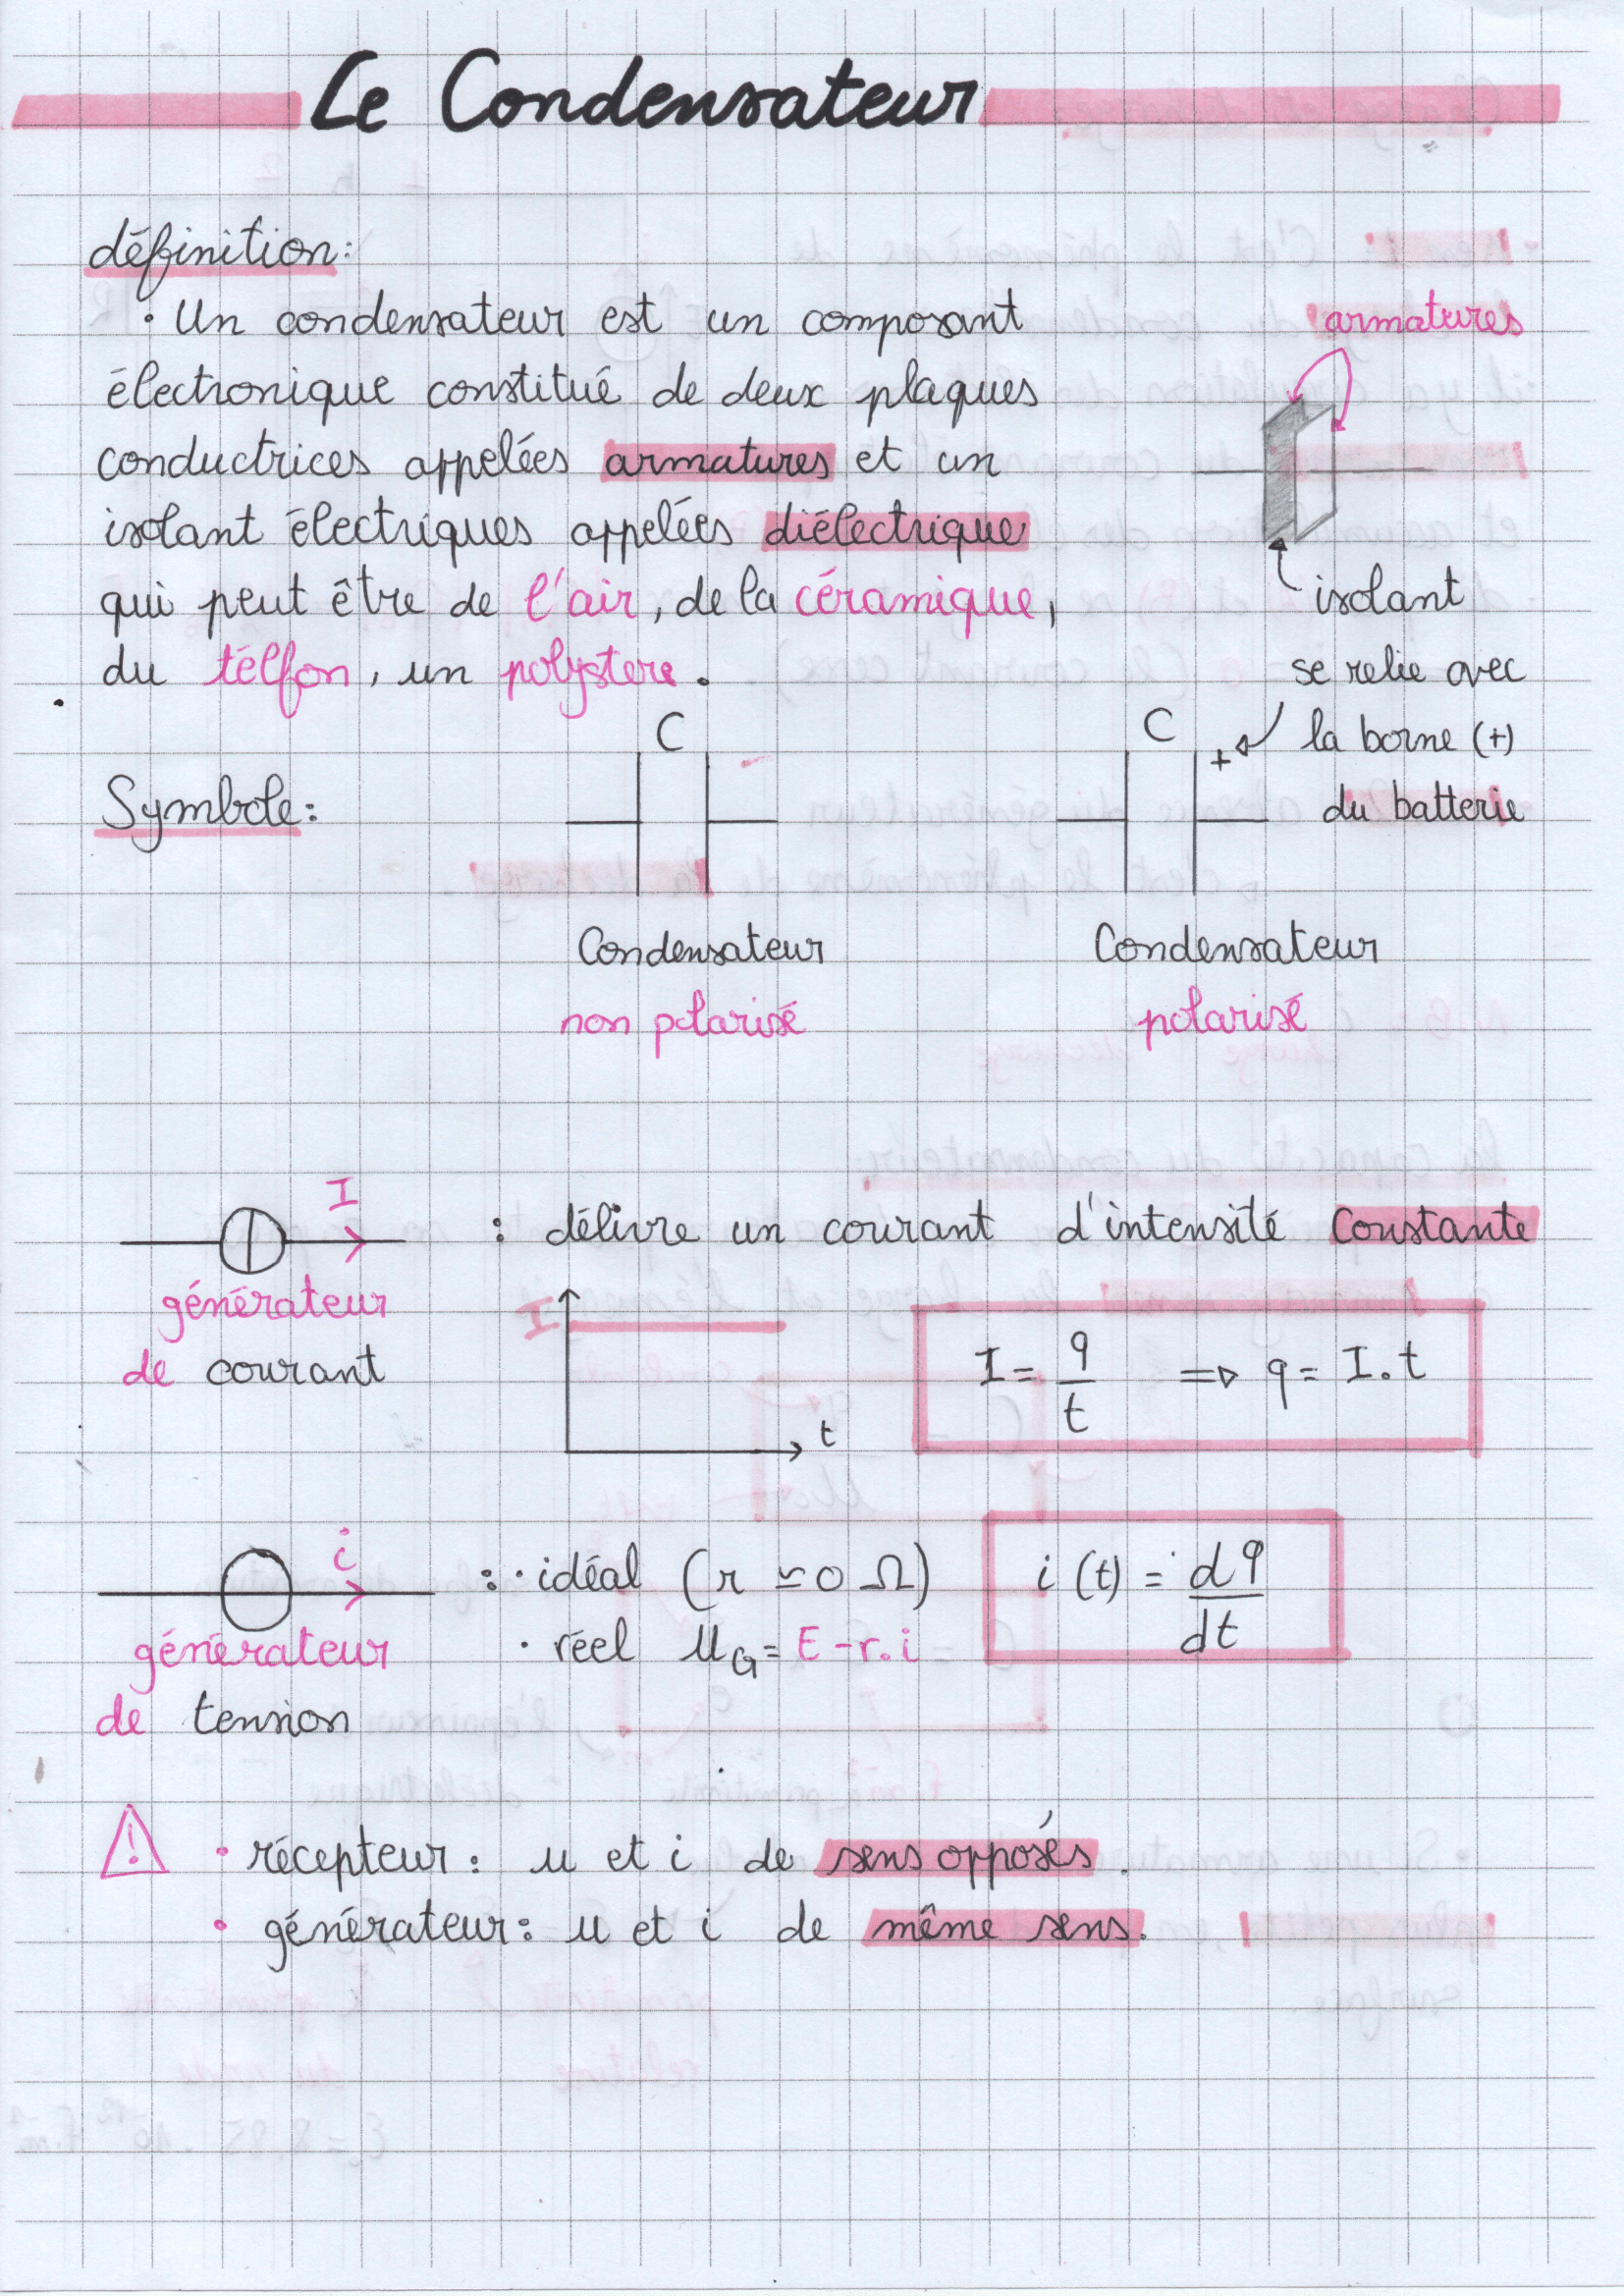 Le Condensateur
définition:
• Un condensateur est un composant
électronique constitué de deux plaques
conductrices appelées armatures et un
isolant électriques appelées diélectrique
qui peut être de l'air, de la céramique,
du télfon, un polystere.
armatures
isolant
Symbole:
C
Condensateur
non polarisé
C
+
se relie avec
la borne (+)
du batterie
Condensateur
polarisé
I
générateur
de courant
: délivre un courant d'intensité constante
I
t
I = q/t => q = I.t
i
générateur
de tension
: • idéal (r ≃ 0 Ω)
• réel uG = E - r.i
i(t) = dq/dt
! • récepteur: u et i de sens opposés.
• générateur: u et i de même sens.